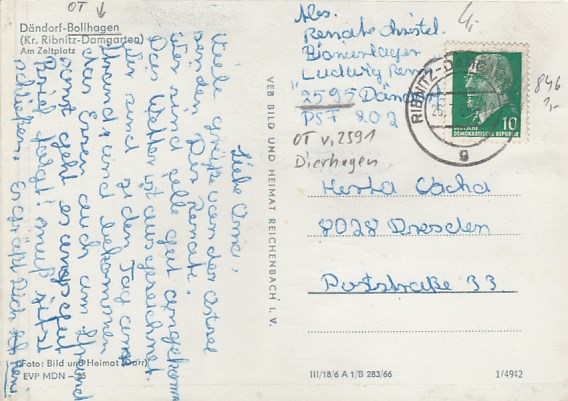 OT
Dändorf-Bollhagen
(Kr. Ribnitz-Damgarten)
Am Zeltplatz
Liebe Oma,
viele Grüße von der Ostsee
senden Dir Renate.
Wir sind alle gut angekommen
Das Wetter ist ausgezeichnet.
Wir sind jeden Tag am
Strand und bekommen
das Essen auch am Strand
sonst geht es
Brief folgt! muß jetzt
schließen. Es grüßt Dich
Foto: Bild und Heimat (Darr)
EVP MDN
VEB BILD UND HEIMAT REICHENBACH i. V.
Abs.
Renate Christel.
Pionierlager
"Ludwig Renn
2595 Dändorf
PSF 202
OT v. 2591
Dierhagen
4,-
846
1,-
RIBNITZ-DAMG
g
10
DEUTSCHE
DEMOKRATISCHE REPUBLIK
Herta
8028 Dresden
Poststraße 33
III/18/6 A 1/B 283/66
1/4942